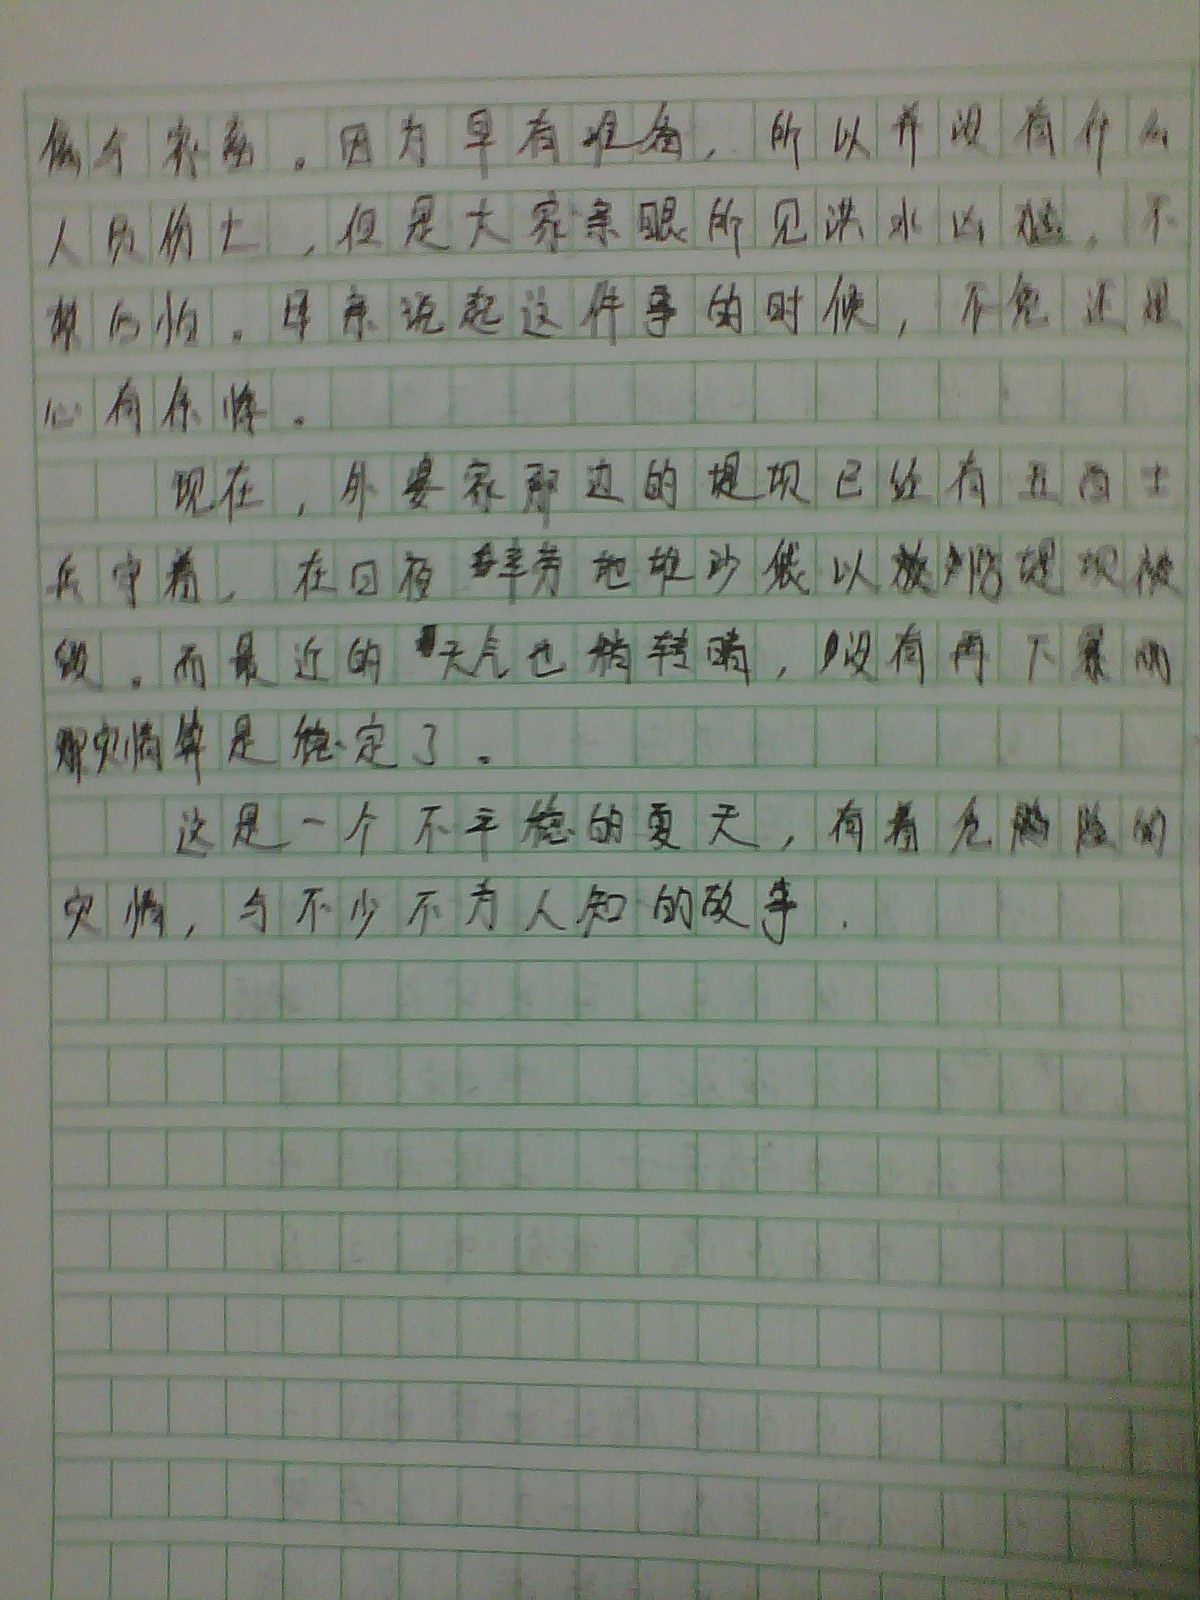 个家庭。因为早有准备，所以并没有什么
人员伤亡，但是大家亲眼所见洪水凶猛，不
禁后怕。母亲说起这件事的时候，不免还是
心有余悸。
现在，外婆家那边的堤坝已经有五百士
兵守着，在日夜辛劳地堆沙袋以防堤坝被
毁。而最近的天气也稍转晴，没有再下暴雨
那灾情算是稳定了。
这是一个不平稳的夏天，有着危险的
灾情，与不少不为人知的故事．